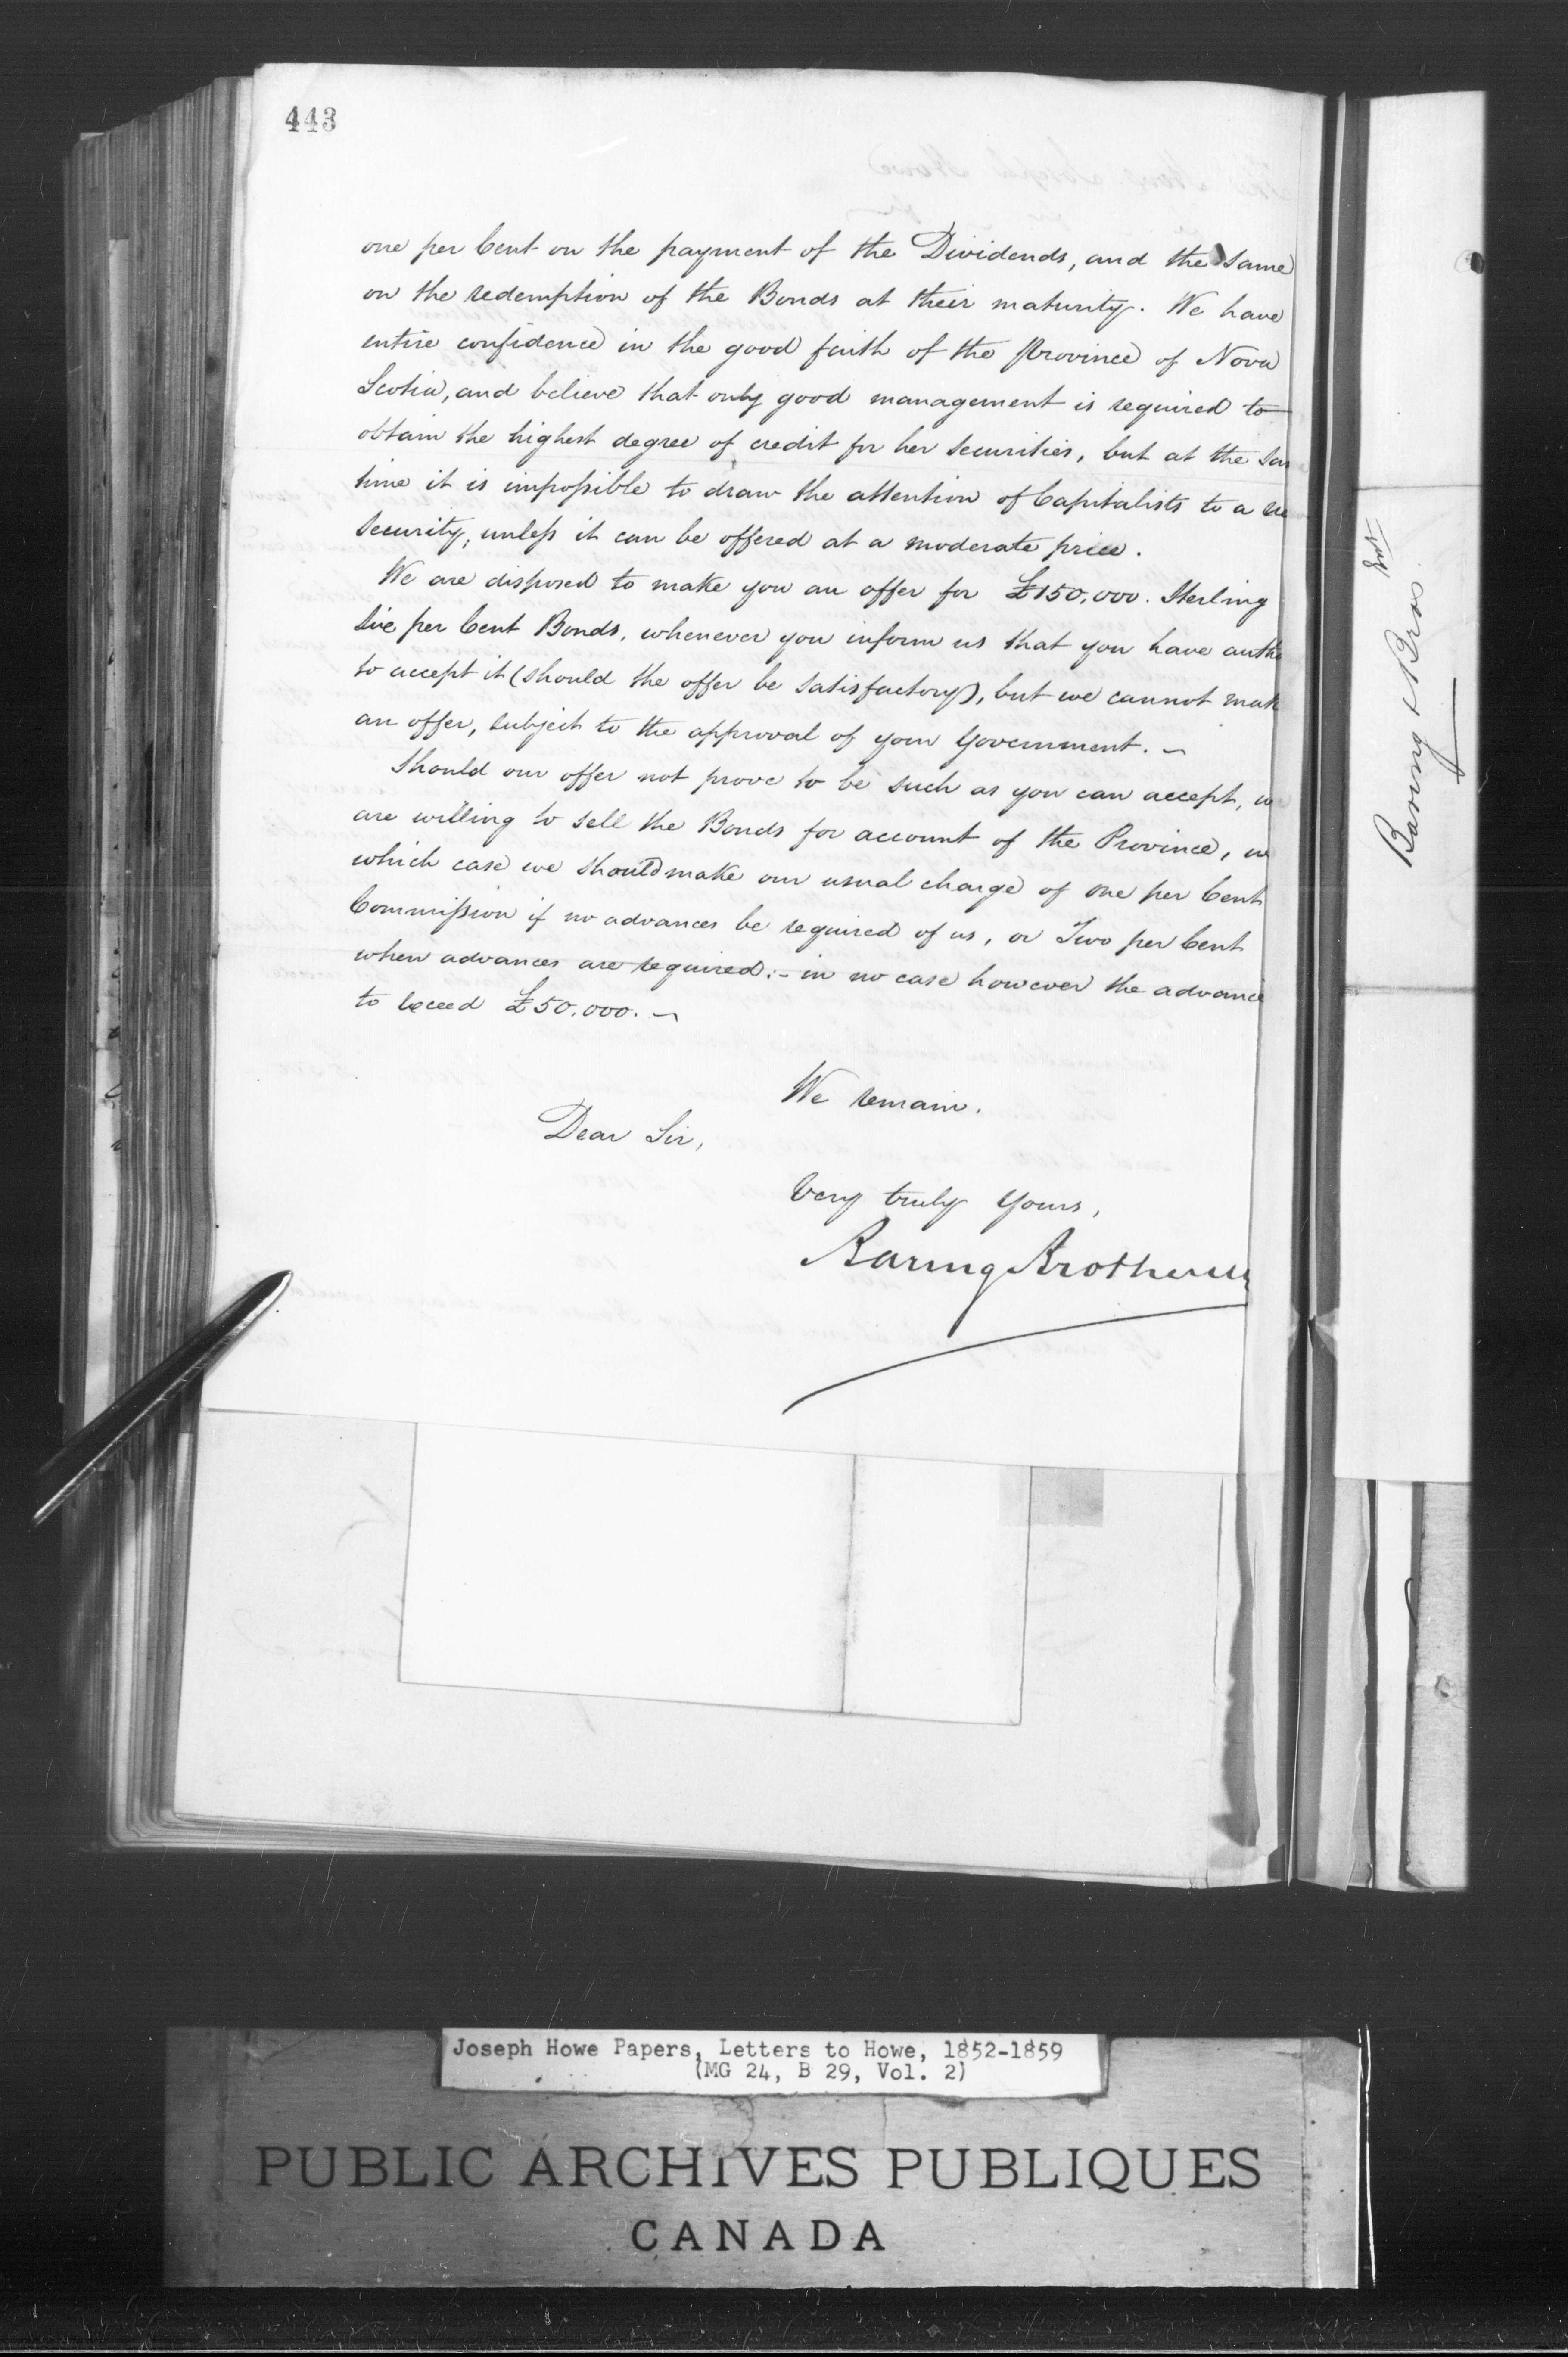 443
one per Cent on the payment of the Dividends, and the same
on the redemption of the Bonds at their maturity. We have
entire confidence in the good faith of the Province of Nova
Scotia, and believe that only good management is required to
obtain the highest degree of credit for her securities, but at the
time it is impossible to draw the attention of Capitalists to a
security, unless it can be offered at a moderate price.
We are disposed to make you an offer for £150,000. Sterling
Six per Cent Bonds, whenever you inform us that you have
to accept it (should the offer be satisfactory), but we cannot
an offer, subject to the approval of your Government. —
Should our offer not prove to be such as you can accept,
are willing to sell the Bonds for account of the Province,
which case we should make our usual charge of one per Cent
Commission if no advances be required of us, or Two per Cent
when advances are required:- in no case however the advance
to exceed £50,000. —
We remain,
Dear Sir,
Very truly Yours,
Baring Brothers
Baring & Bros
Joseph Howe Papers, Letters to Howe, 1852-1859
(MG 24, B 29, Vol. 2)
PUBLIC ARCHIVES PUBLIQUES
CANADA